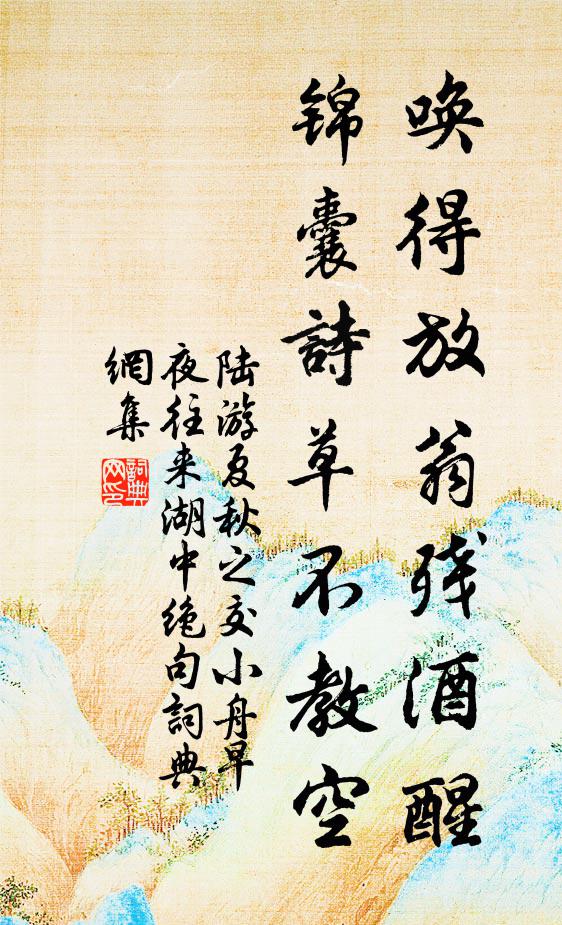 唤得放翁残酒醒
锦囊詩草不教空
陆游夏秋之交小舟早
夜往来湖中绝句詞典
網集
詞典
网印